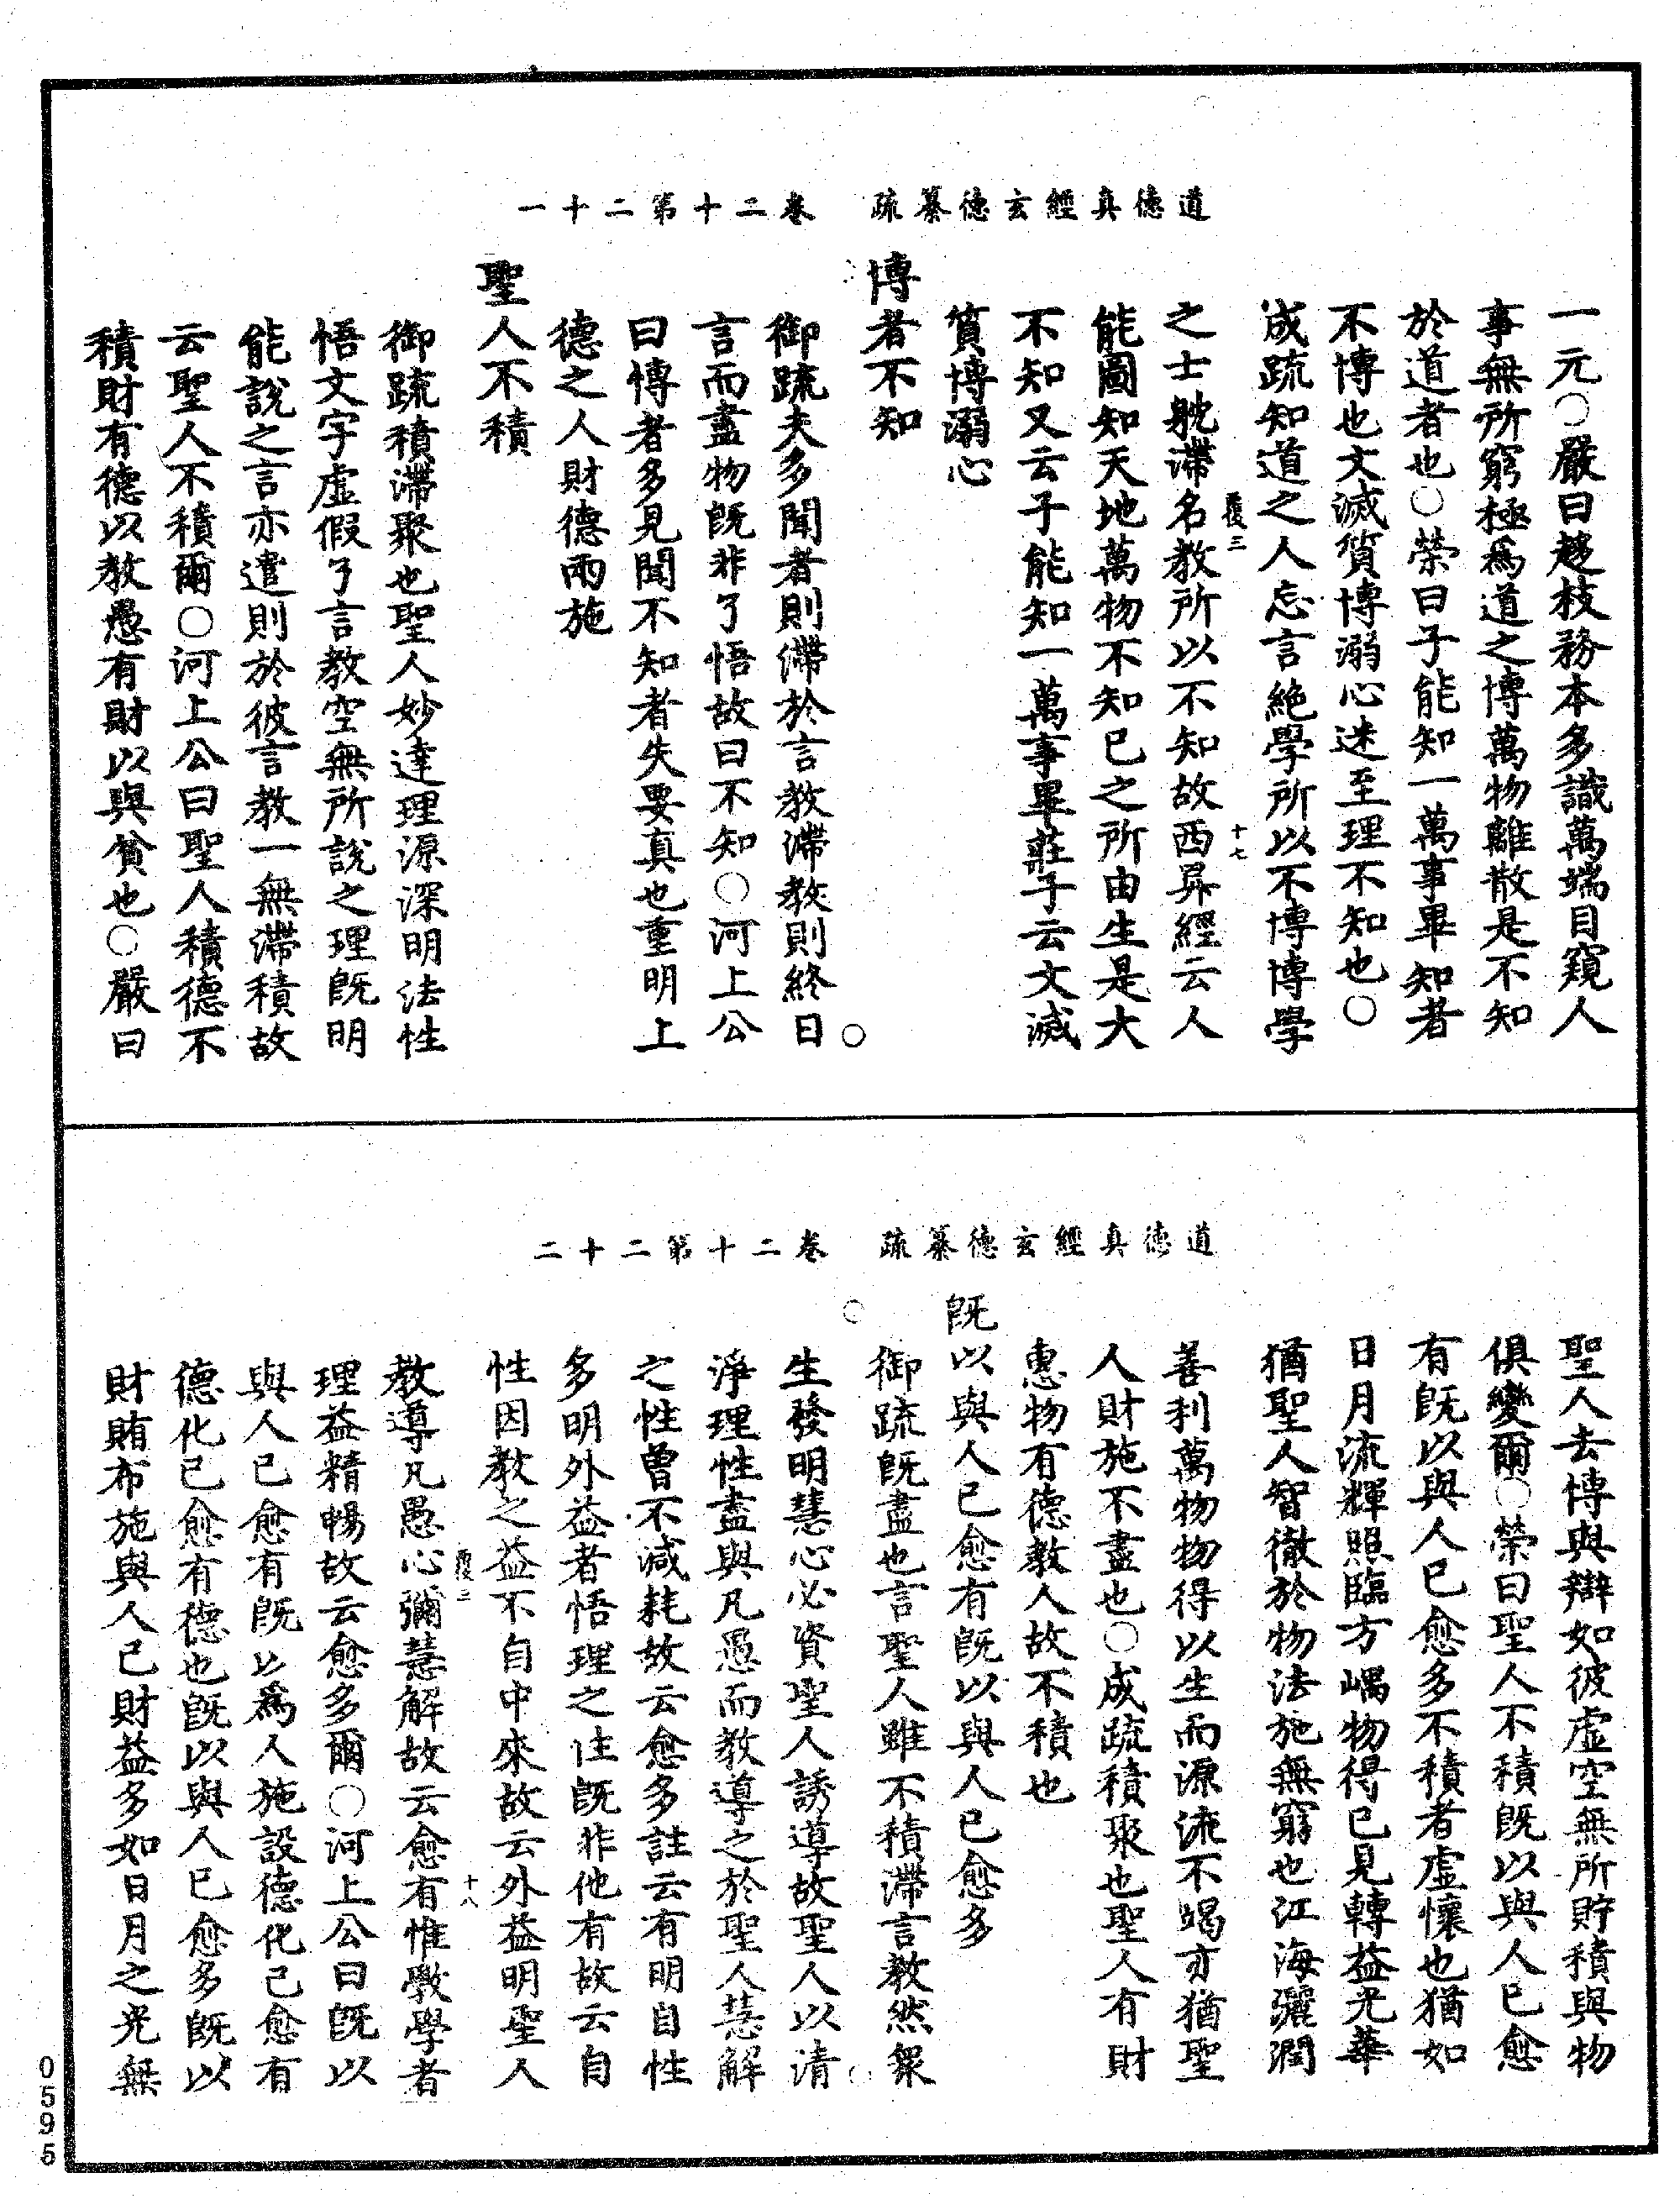 道德真經玄德纂疏　卷二十第二十一
一元○嚴曰趍枝務本多識萬端目窺人
事無所窮極爲道之博萬物離散是不知
於道者也○榮曰子能知一萬事畢知者
不博也文滅質博溺心迷至理不知也○
成疏知道之人忘言絶學所以不博博學
覆三　十七
之士躭滯名教所以不知故西昇經云人
能圖知天地萬物不知已之所由生是大
不知又云子能知一萬事畢莊子云文滅
質博溺心
博者不知
御疏夫多聞者則滯於言教滯教則終日
言而盡物旣非了悟故曰不知○河上公
曰博者多見聞不知者失要真也重明上
德之人財德兩施
聖人不積
御疏積滯聚也聖人妙達理源深明法性
悟文字虛假了言教空無所說之理旣明
能說之言亦遣則於彼言教一無滯積故
云聖人不積爾○河上公曰聖人積德不
積財有德以教愚有財以與貧也○嚴曰
道德真經玄德纂疏　卷二十第二十二
聖人去博與辯如彼虛空無所貯積與物
俱變爾○榮曰聖人不積旣以與人已愈
有旣以與人已愈多不積者虛懷也猶如
日月流輝照臨方嵎物得已見轉益光華
猶聖人智徹於物法施無窮也江海灑潤
善利萬物物得以生而源流不竭亦猶聖
人財施不盡也○成疏積聚也聖人有財
惠物有德教人故不積也
旣以與人已愈有旣以與人已愈多
御疏旣盡也言聖人雖不積滯言教然衆
生發明慧心必資聖人誘導故聖人以清
淨理性盡與凡愚而教導之於聖人慧解
之性曾不減耗故云愈多註云有明自性
多明外益者悟理之性旣非他有故云自
性因教之益不自中來故云外益明聖人
覆三　十八
教導凡愚心彌慧解故云愈有惟斆學者
理益精暢故云愈多爾○河上公曰旣以
與人已愈有旣以爲人施設德化己愈有
德化已愈有德也旣以與人已愈多旣以
財賄布施與人已財益多如日月之光無
0595